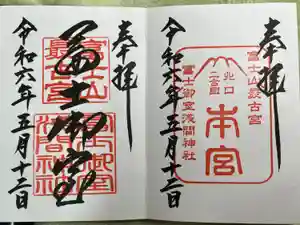 奉拝
富士山
北口
二合目
本宮
富士山最古宮
冨士御室浅間神社
令和六年五月十二日
奉拝
冨士御室
富士山
最古宮
冨士御室
浅間神社
令和六年五月十二日